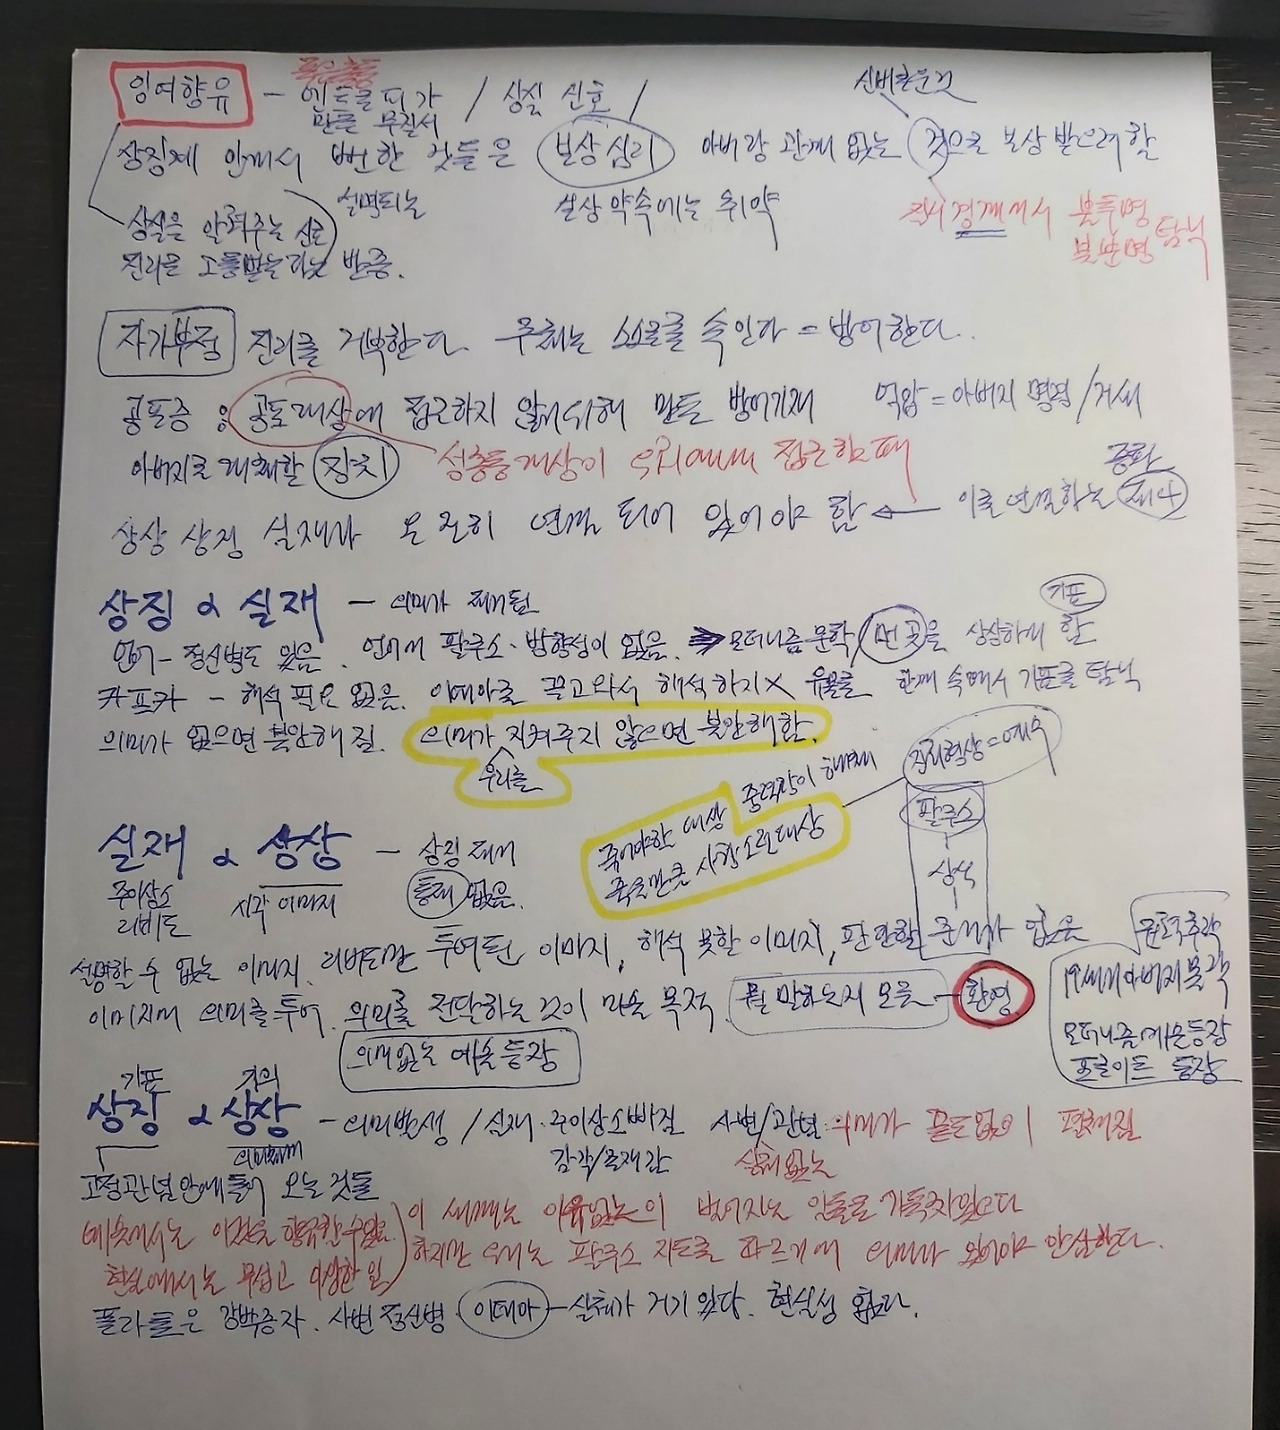 잉여향유 - 엔트로피가 / 상실 신호 /
만든 무질서
신비로운것
상징계 안에서 뻔한 것들은 보상심리 아버랑 관계 없는 것으로 보상 받으려 할
설명되는
환상 약속에는 취약
경계에서 불투명
불분명 탐닉
상실을 알려주는 신호
진리를 고통받는다는 반증.
자가부정 진리를 거부한다. 무의식는 스스로를 속인다 = 방어한다.
공포증 : 공포대상에 접근하지 않기위해 만든 방어기제 억압 = 아버지 명령 / 거세
아버지로 대체할 장치
성충동대상이 우리에게 접근할때
증환
상상 상징 실재가 온전히 연결 되어 있어야 함 ← 이를 연결하는
상징 α 실재 - 의미가 제거됨
기표
언어 - 정신병도 있음. 언어에 팔루스·방향성이 없음. ⇒ 모더니즘 문학 / 먼 곳을 상상하게 할
카프카 - 해석 필요 없음. 이데아를 끌고와서 해석하지X 우울를 한계 속에서 기표를 탐닉
의미가 없으면 불안해 짐. 의미가 지켜주지 않으면 불안해함.
우리를
죽어야할 대상 중력장이 해체
죽을만큼 사랑스런대상
진리현상=예수
팔루스
상식
실재 α 상상 - 상징 제거
주이상스
리비도
시각 이미지
통제 없음.
설명할 수 없는 이미지. 리비도만 투여된 이미지, 해석 못할 이미지, 판단할 근거가 없음
이미지에 의미를 투여. 의미를 전달하는 것이 마술 목적. 뭘 말하는지 모름 - 환영
의미없는 예술 등장
19세기 아버지 몰락
모더니즘예술등장
프로이트 등장
기표
기의
상징 α 상상 - 의미발생 / 실재·주이상스빠짐 사변/관념 : 의미가 끝도없이 펼쳐짐
의미체계
감각/존재감
실체 없는
고정관념안에 들어 오는 것들
예술에서는 이것을 향유할 수 있음.
현실에서는 무섭고 이상한 일
이 세계는 이유없는 의 벌어지는 일들로 가득차있다
하지만 우리는 팔루스 지도를 따르기에 의미가 있어야 안심한다.
플라톤은 강박증자. 사변 정신병. 이데아 - 실체가 거기 있다. 현실성 없다.